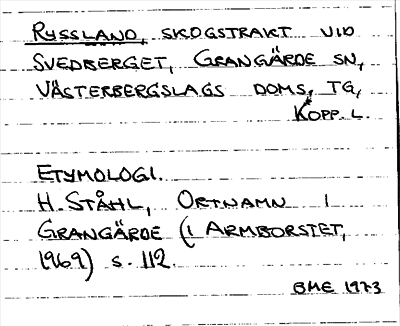 RYSSLAND, SKOGSTRAKT VID
SVEDBERGET, GRANGÄRDE SN,
VÄSTERBERGSLAGS DOMS, TG,
KOPP. L.
ETYMOLOGI.
H. STÅHL, ORTNAMN I
GRANGÄRDE (I ARMBORSTET,
1969) S. 112.
BME 1973